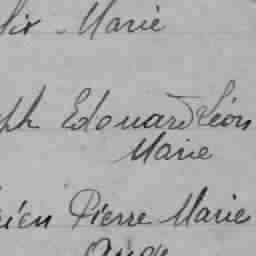 lix - Marie
ph Edouard Léon
Marie
rien Pierre Marie
Ange